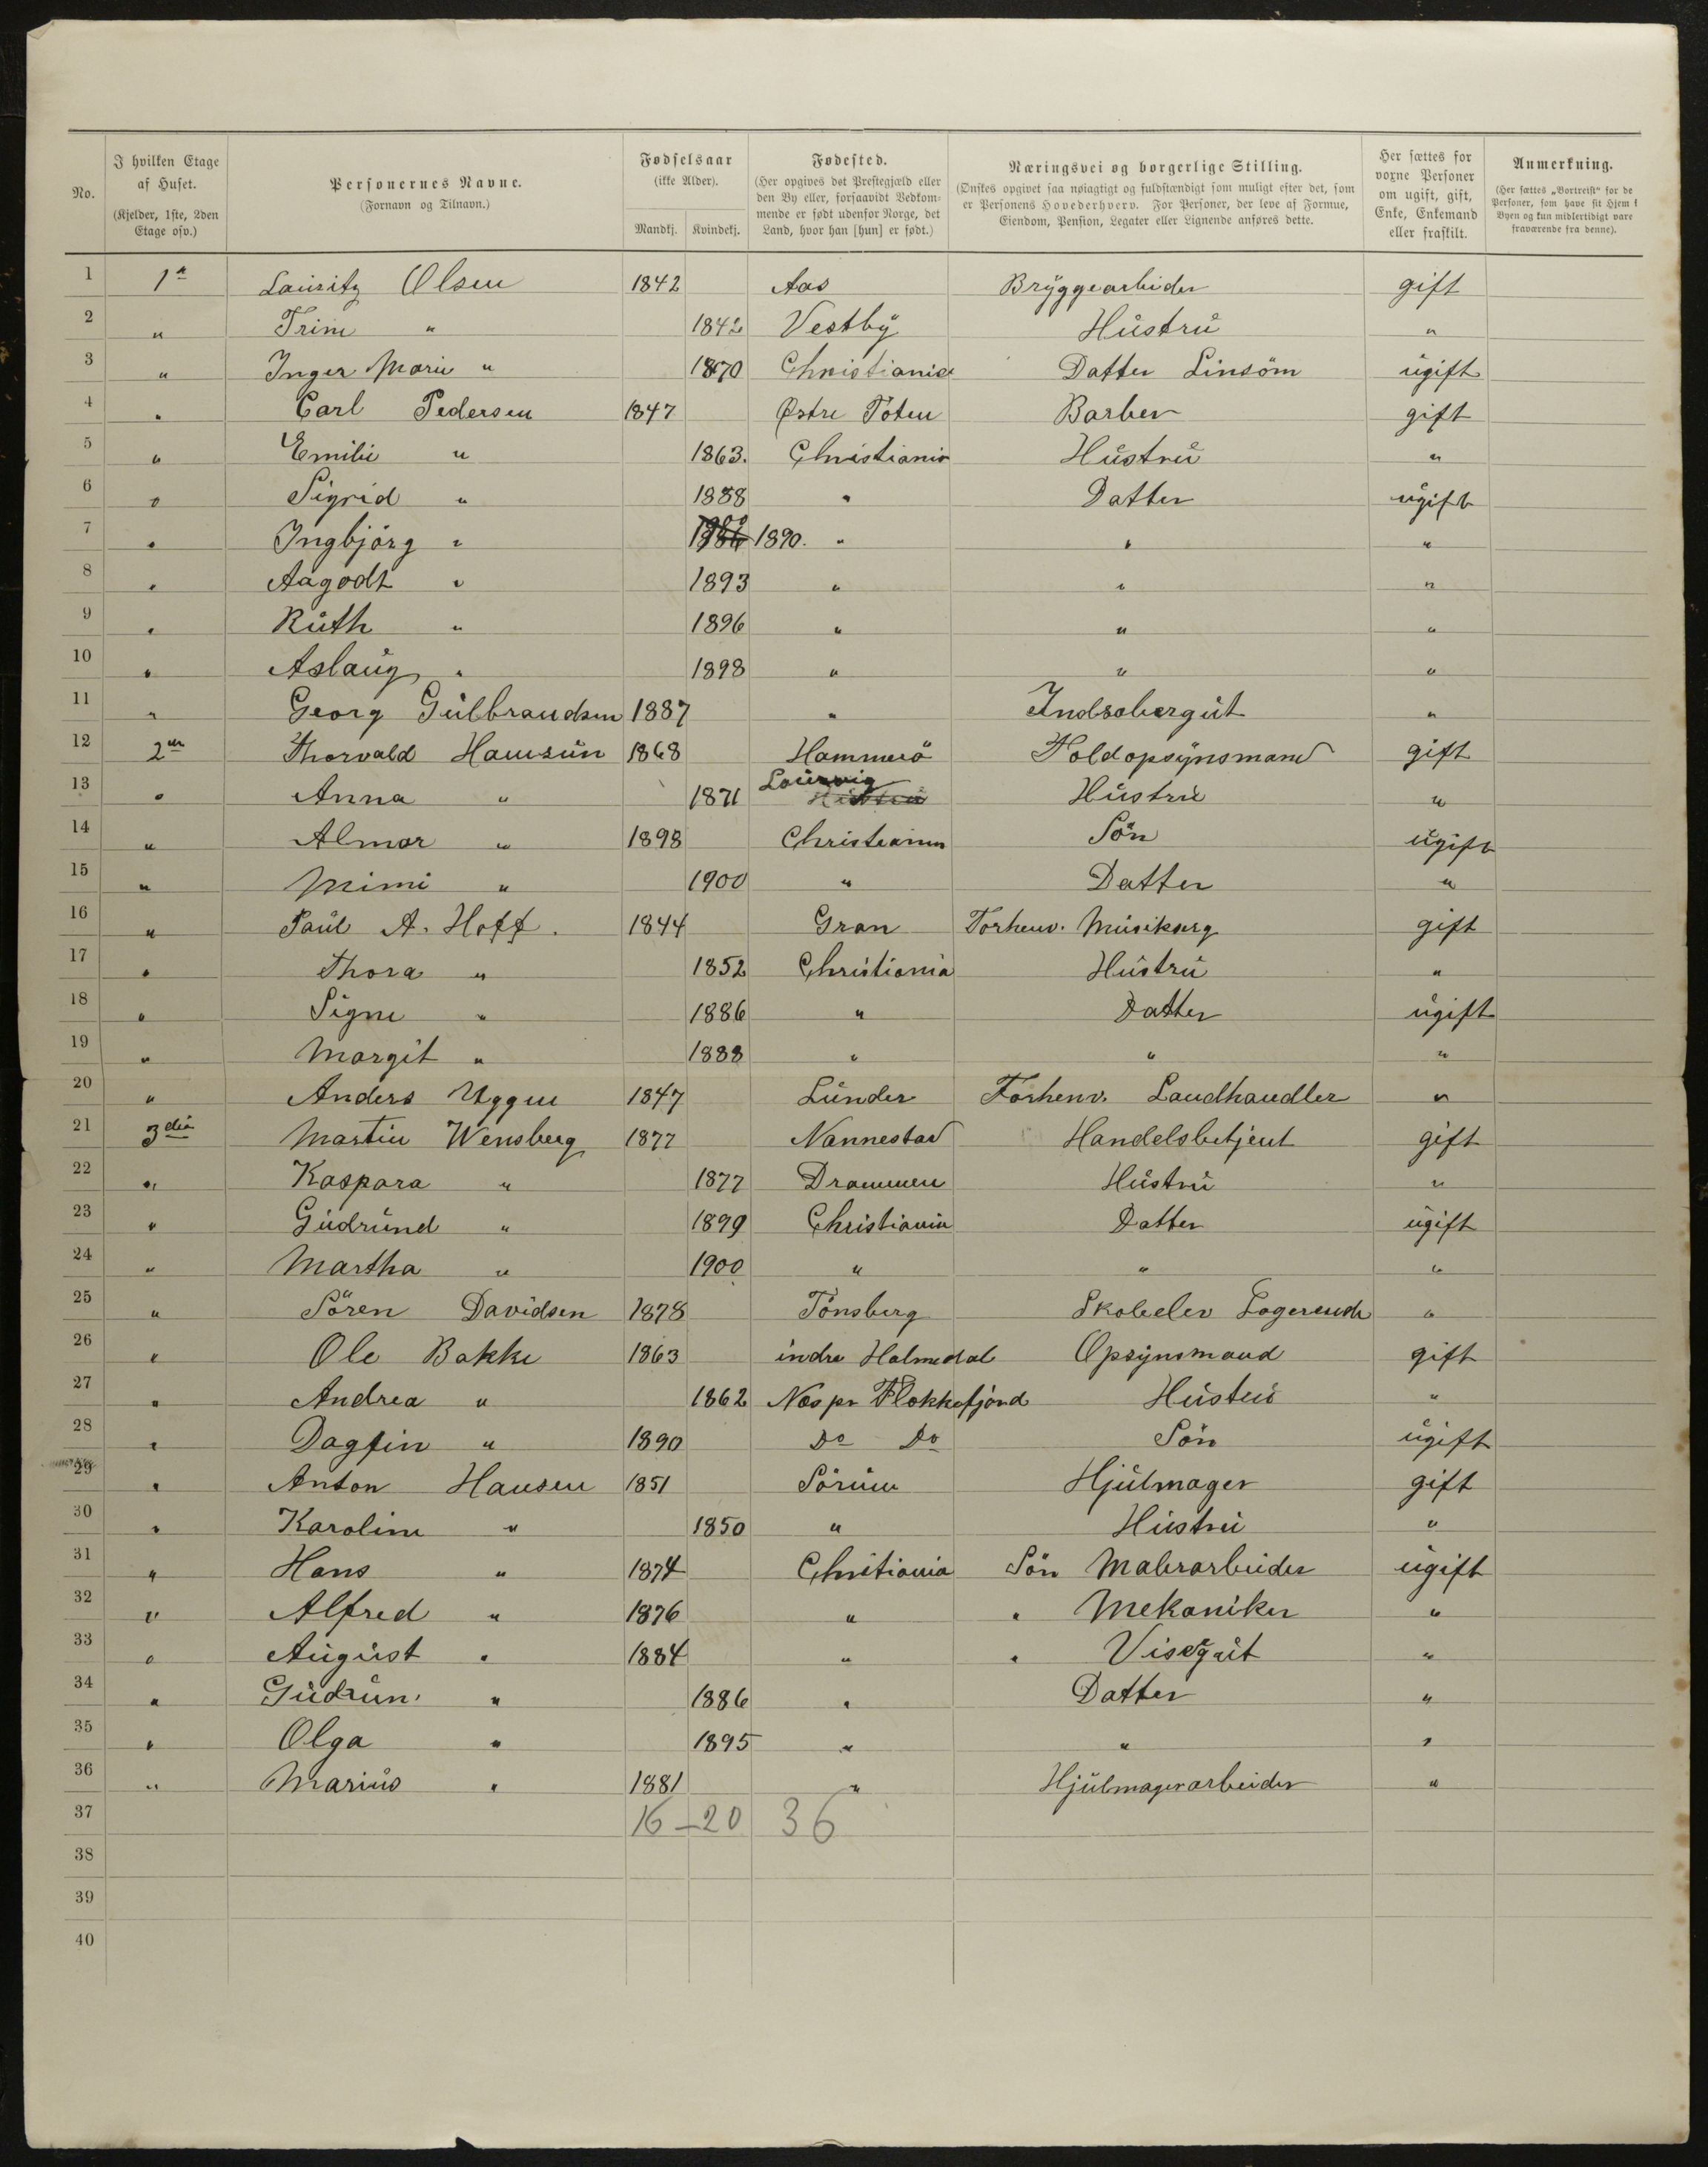 No. | I hvilken Etage af Huset. (Kjelder, 1ste, 2den Etage osv.) | Personernes Navne. (Fornavn og Tilnavn.) | Fødselsaar (ikke Alder). Mandkj. Kvindekj. | Fødested. (Her opgives det Prestegjæld eller den By eller, forsaavidt Vedkommende er født udenfor Norge, det Land, hvor han [hun] er født.) | Næringsvei og borgerlige Stilling. (Ønskes opgivet saa nøiagtigt og fuldstændigt som muligt efter det, som er Personens Hovederhverv. For Personer, der leve af Formue, Eiendom, Pension, Legater eller Lignende anføres dette.) | Her sættes for voxne Personer om ugift, gift, Enke, Enkemand eller fraskilt. | Anmerkning. (Her sættes „Bortreist“ for de Personer, som have sit Hjem i Byen og kun midlertidigt vare fraværende fra denne).
1 1ste Lauritz Olsen 1842 Aas Bryggearbeider gift
2 " Trine " 1842 Vestby Hustru "
3 " Inger Marie " 1870 Christiania Datter Linsöm ugift
4 " Carl Pedersen 1847 Østre Toten Barber gift
5 " Emilie " 1863. Christiania Hustru "
6 " Sigrid " 1888 " Datter ugift
7 " Ingbjörg " 1890. " " "
8 " Aagodt " 1893 " " "
9 " Ruth " 1896 " " "
10 " Aslaug " 1898 " " "
11 " Georg Gulbrandsen 1887 " "
12 2den Thorvald Hamsun 1868 Hammerö Toldopsynsmand gift
13 " Anna " 1871 Laurvig Hustru "
14 " Almar " 1898 Christiania Sön ugift
15 " Mimi " 1900 " Datter "
16 " Paul A. Hoff. 1844 Gran Forhenv. gift
17 " Thora " 1852 Christiania Hustru "
18 " Signe " 1886 " Datter ugift
19 " Margit " 1888 " " "
20 " Anders Uggen 1847 Lunder Forhenv. Landhandler "
21 3die Martin Wensberg 1877 Nannestad Handelsbetjent gift
22 " Kaspara " 1877 Drammen Hustru "
23 " Gudrund " 1899 Christiania Datter ugift
24 " Martha " 1900 " " "
25 " Sören Davidsen 1878 Tönsberg Skoelev Logerende "
26 " Ole Bakke 1863 indre Holmedal Opsynsmand gift
27 " Andrea " 1862 Nes pr Flekkefjord Hustru "
28 " Dagfin " 1890 Do Do Sön ugift
29 " Anton Hansen 1851 Sörum Hjulmager gift
30 " Karoline " 1850 " Hustru "
31 " Hans " 1874 Chritiania Sön Malerarbeider ugift
32 " Alfred " 1876 " " Mekaniker "
33 " August " 1884 " " Visergut "
34 " Gudrun " 1886 " Datter "
35 " Olga " 1895 " " "
36 " Marius " 1881 " Hjulmagerarbeider "
37 16 – 20 36
38
39
40